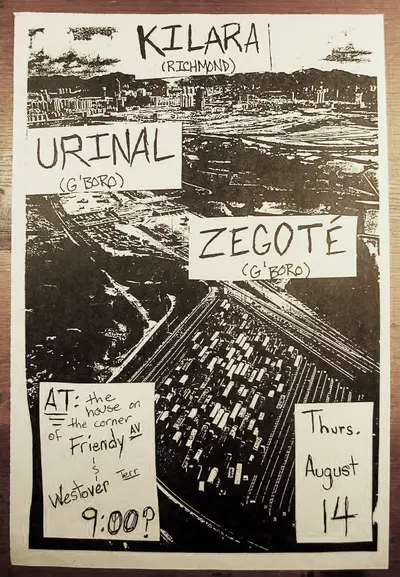 KILARA
(RICHMOND)
URINAL
(G'BORO)
ZEGOTÉ
(G'BORO)
AT: the
house on
the corner
of Friendy AV
&
Westover Terr
9:00?
Thurs.
August
14